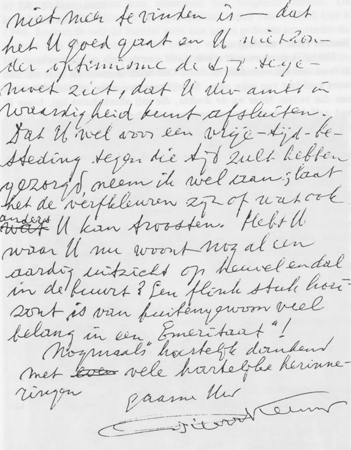 niet meer te vinden is — dat
het U goed gaat en U niet zon-
der optimisme de tijd tege-
moet ziet, dat U Uw ambt in
waardigheid kunt afsluiten.
Dat U wel voor een vrije-tijd-be-
steding tegen die tijd zult hebben
gezorgd, neem ik wel aan; laat
het de verfkleuren zijn of wat ook
anders U kan troosten. Hebt U
waar U nu woont nog al een
aardig uitzicht op heuvel en dal
in de buurt? Een flink stuk hori-
zont is van buitengewoon veel
belang in een "Emeritaat"!
Nogmaals hartelijk dankend
met vele hartelijke herinne-
ringen
gaarne Uw